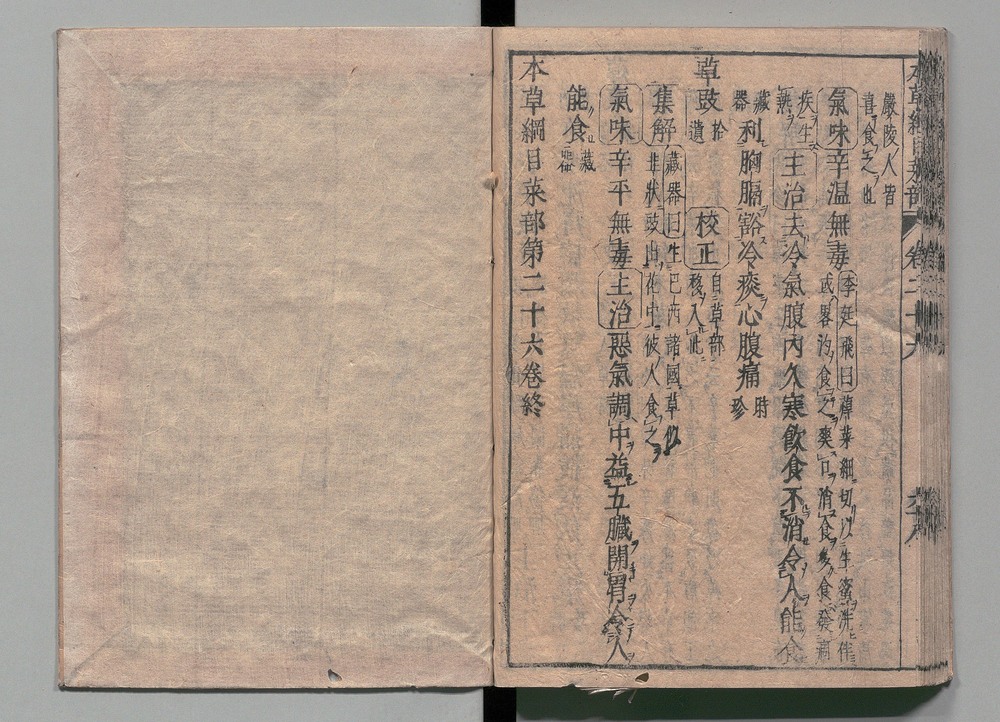 嚴陵人皆
喜食之也
氣味辛温無毒
李廷飛曰蔊菜細切以生蜜洗伴
或畧汋食之爽口消食多食發痼
疾生
熱
主治去冷氣腹内久寒飲食不消令人能食
藏
器
利胸膈豁冷痰心腹痛
時
珍
草豉
拾
遺
校正
自草部
移入此
集解
藏器曰生巴西諸國草似
韭狀豉出花中彼人食之
氣味辛平無毒主治惡氣調中益五臓開胃令人
能食
藏
器
本草綱目菜部第二十六卷終